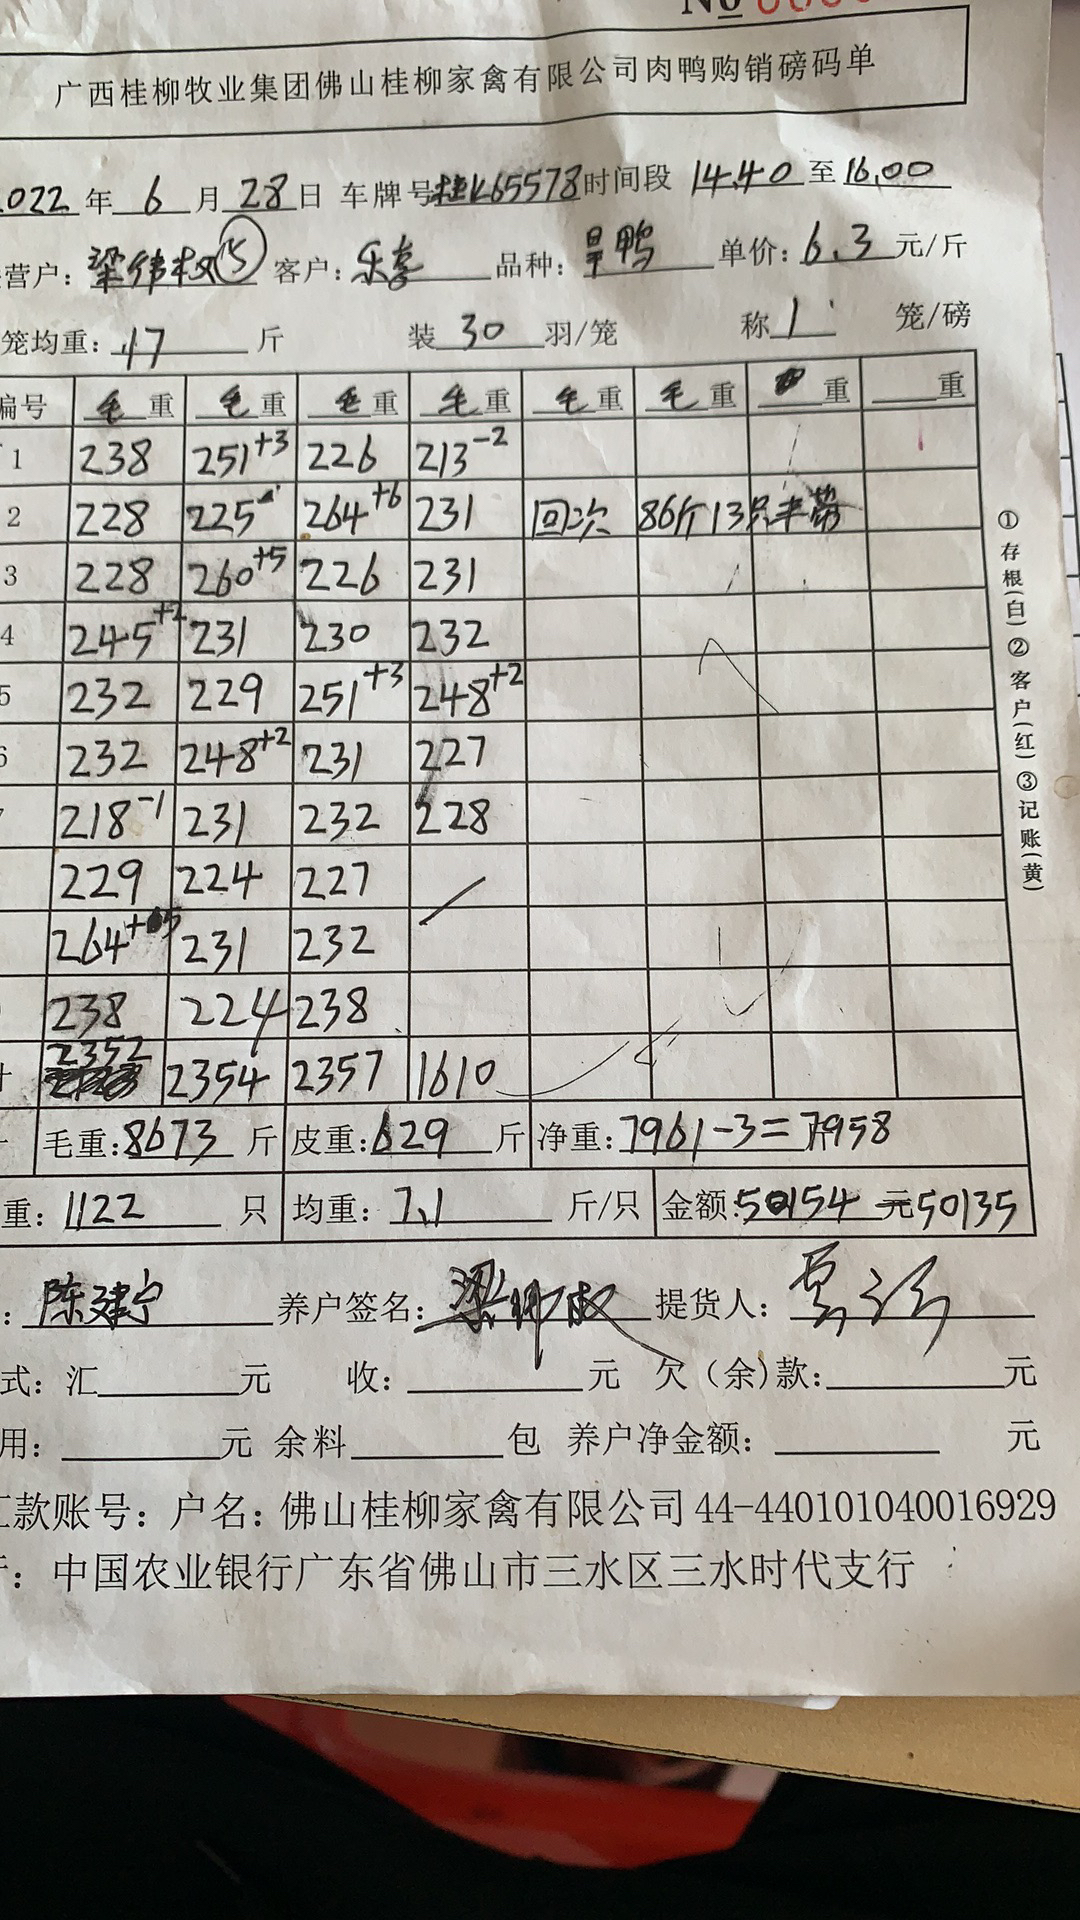 No
广西桂柳牧业集团佛山桂柳家禽有限公司肉鸭购销磅码单
2022 年 6 月 28 日 车牌号 桂K65578 时间段 14.40 至 16.00
营户: 梁伟权 ⑤ 客户: 乐喜 品种: 旱鸭 单价: 6.3 元/斤
笼均重: 17 斤 装 30 羽/笼 称 1 笼/磅
编号 毛重 毛重 毛重 毛重 毛重 毛重 重 重
1 238 251+3 226 213-2
2 228 225 264+6 231 回次 86斤13只
3 228 260+5 226 231
4 245+2 231 230 232
5 232 229 251+3 248+2
6 232 248+2 231 227
218-1 231 232 228
229 224 227
264+5 231 232
238 224 238
2352 2354 2357 1610
毛重: 8673 斤 皮重: 629 斤 净重: 7961-3=7958
重: 1122 只 均重: 7.1 斤/只 金额: 50154 元 50135
: 陈建宁 养户签名: 提货人:
式: 汇 元 收: 元 欠(余)款: 元
用: 元 余料 包 养户净金额: 元
汇款账号: 户名: 佛山桂柳家禽有限公司 44-440101040016929
: 中国农业银行广东省佛山市三水区三水时代支行
①存根(白)②客户(红)③记账(黄)